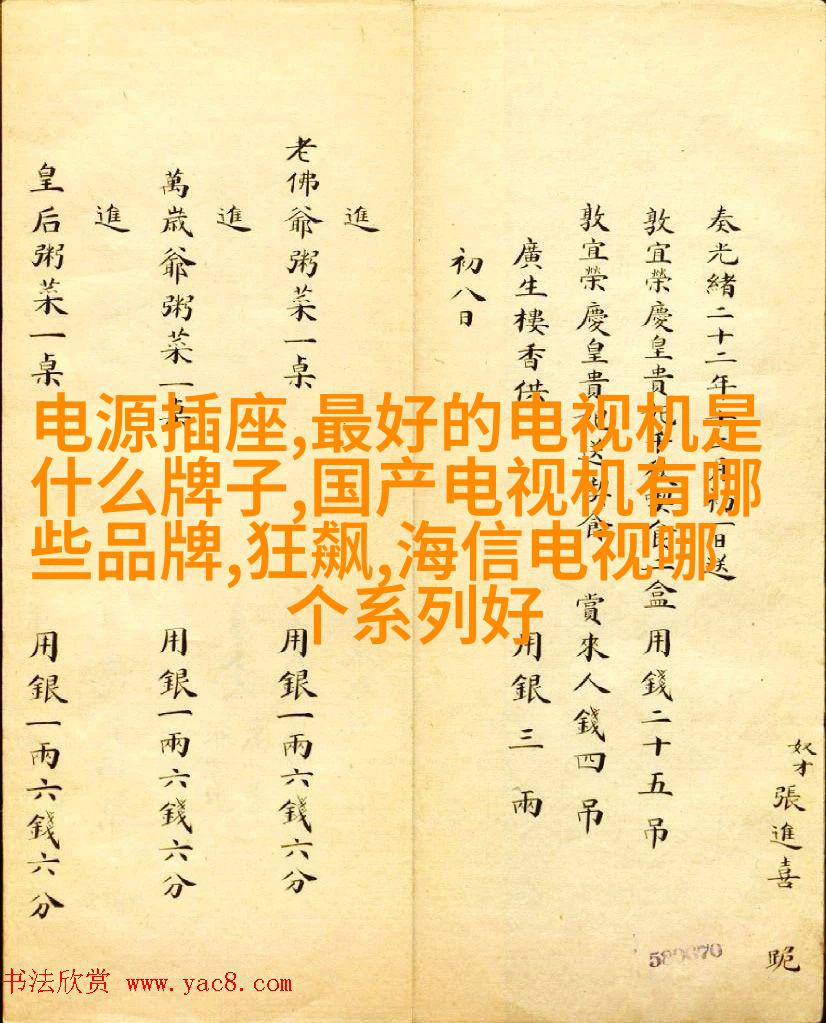 奴才張進喜 跪
奏光緒二十二年初一日送
敦宜榮慶皇貴食一盒 用錢二十五吊
敦宜榮慶皇貴食 賞來人錢四吊
廣生樓香供 用銀三兩
初八日
進
老佛爺粥菜一桌 用銀一兩六錢六分
進
萬歲爺粥菜一桌 用銀一兩六錢六分
進
皇后粥菜一桌 用銀一兩六錢六分
电源插座,最好的电视机是
什么牌子,国产电视机有哪
些品牌,狂飙,海信电视哪
个系列好
580670
书法欣赏 www.yac8.com